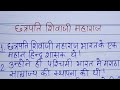 छत्रपति शिवाजी महाराज
1. छत्रपति शिवाजी महाराज भारत के एक
महान हिन्दू शासक थे।
2. उन्होंने ही पश्चिमी भारत में मराठा
साम्राज्य की स्थापना की थी।